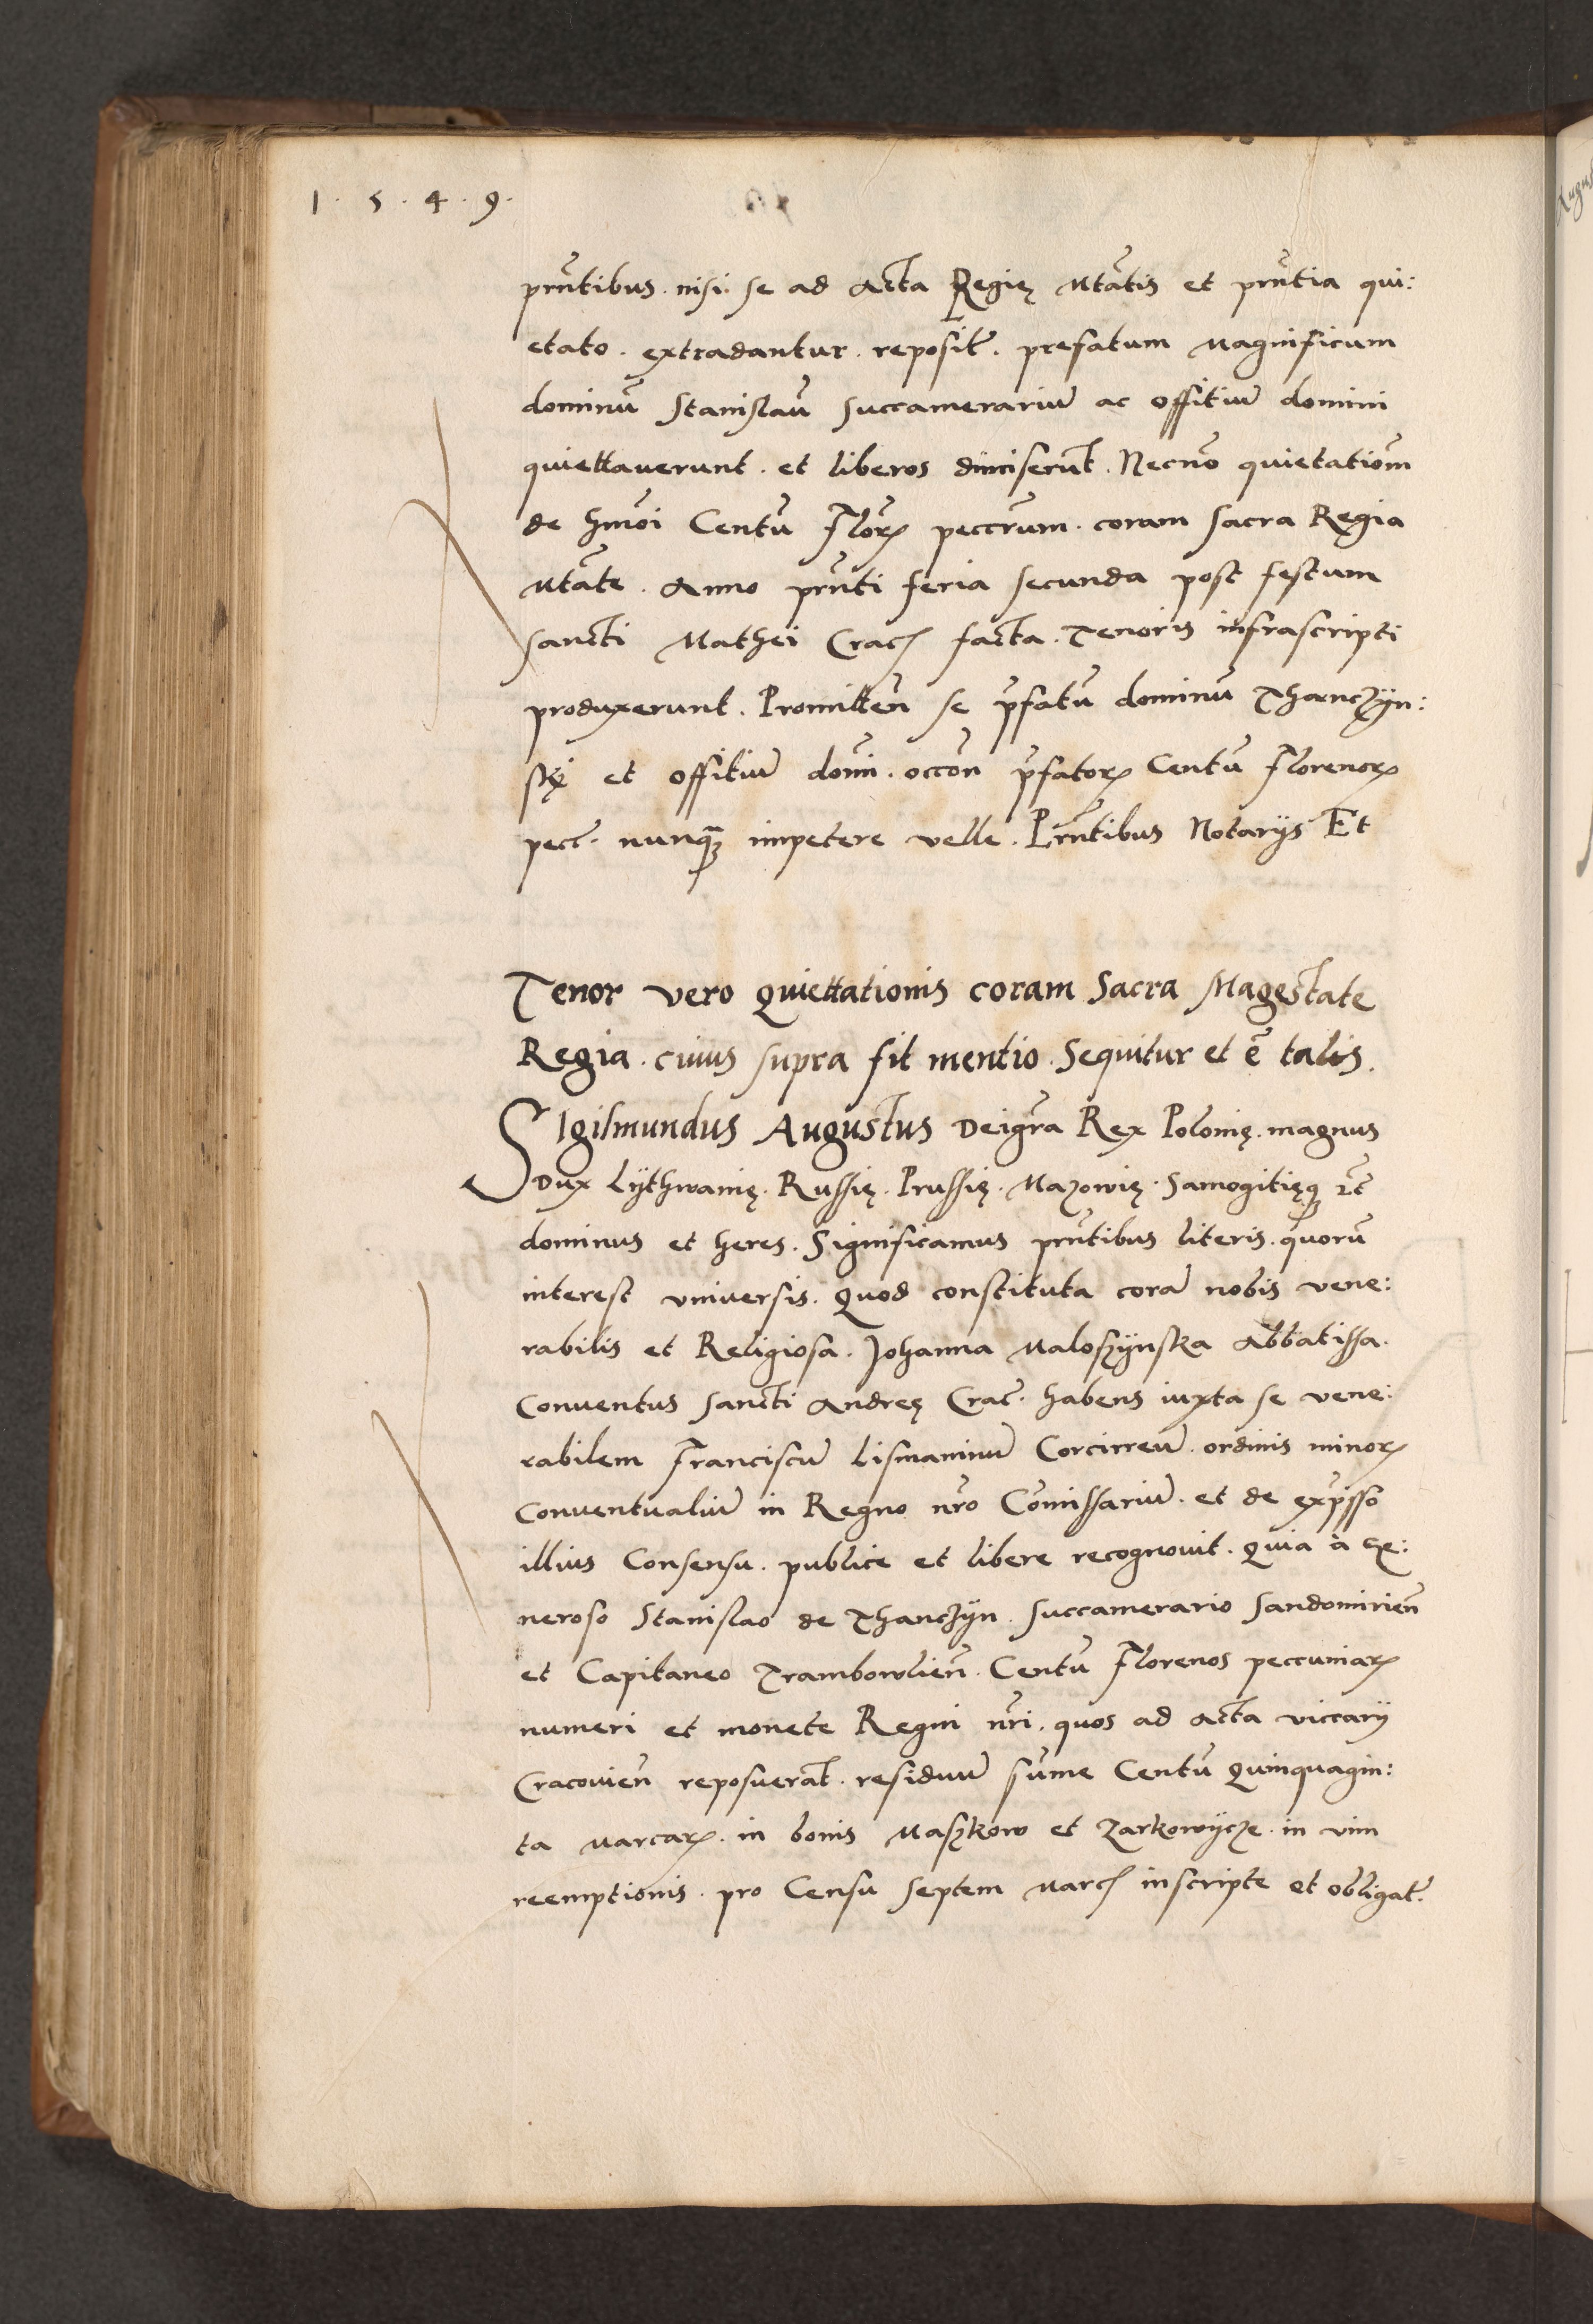 1 . 5 . 4 . 9 .
prn̄tibus . nisi . se ad Acta Regię Mtātis et prn̄tia qui:
etato . extradantur . reposit̄ . prefatum Magnificum
dominū Stanislaū Succamerariū ac offitiū domini
quiettaverunt . et liberos dimiserūt . Necnō quietatiōm
de hmōi Centū Florꝝ peccrūm . coram Sacra Regia
Mtāte . Anno prn̄ti feria secunda post festum
Sancti Mathei Crac̄ facta . Tenoris infrascripti
produxerunt . Promitteñ se p̄fatū dominū Thanczÿn:
skį et offitiū domī . occōn p̄fatorꝝ Centū Florenorꝝ
pecc̄ . nunqꝫ impetere velle . Prn̄tibus Notarijs Et
Tenor vero Quiettationis coram Sacra Magestate
Regia . cuius supra fit mentio . Sequitur et ē talis .
SIgismundus Augustus Dei grā Rex Polonię . magnus
Dux Lÿthwanię . Russię . Prussię . Mazowię . Samogitięqꝫ ⁊c̄
dominus et heres . Significamus prn̄tibus literis . quorū
interest universis . Quod constituta corā nobis vene:
rabilis et Religiosa . Johanna Maloszÿnska Abbatissa .
Conventus Sancti Andreę Crac̄ . habens iuxta se vene:
rabilem Franciscū Lismaninū Corcirreū . ordinis minorꝝ
Conventualiū in Regno nrō Cōmissariū . et de exp̄sso
illius Consensu . publice et libere recognovit . Quia à Ge:
neroso Stanislao de Thanczÿn . Succamerario Sandomirieñ
et Capitaneo Trambowlieñ . Centū Florenos peccuniarꝝ
numeri et monete Regni nrī . quos ad Acta viccarij
Cracovieñ reposuerat̄ . residuū sūme Centū Quinquagin:
ta Marcarꝝ . in bonis Maszkow et Zarkowÿcze . in vim
reemptionis . pro Censu Septem Marc̄ inscripte et obligat̄ .